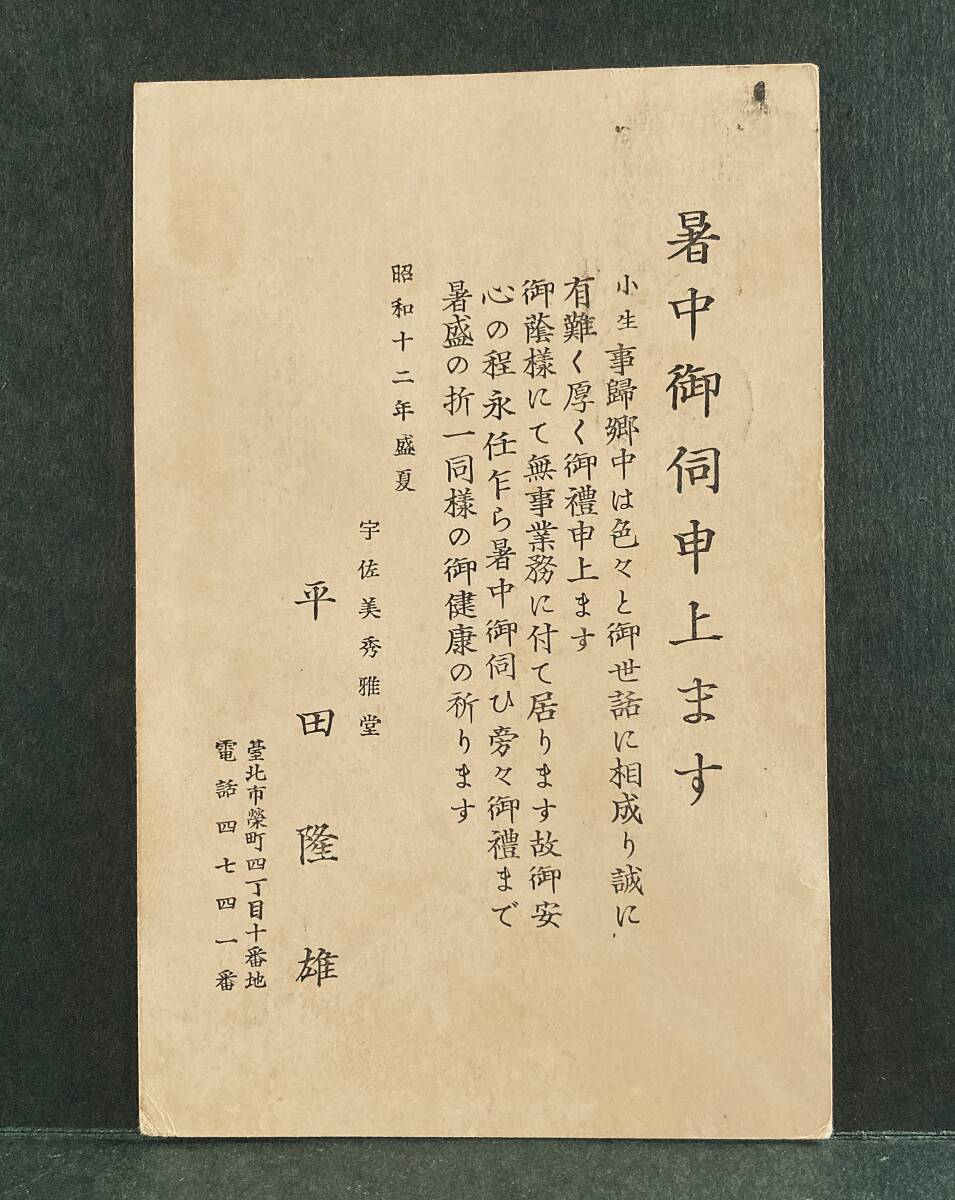 暑中御伺申上ます
小生事歸鄉中は色々と御世話に相成り誠に
有難く厚く御禮申上ます
御蔭樣にて無事業務に付て居ります故御安
心の程永任乍ら暑中御伺ひ旁々御禮まで
暑盛の折一同樣の御健康の祈ります
昭和十二年盛夏
宇佐美秀雅堂
平田隆雄
臺北市榮町四丁目十番地
電話四七四一番